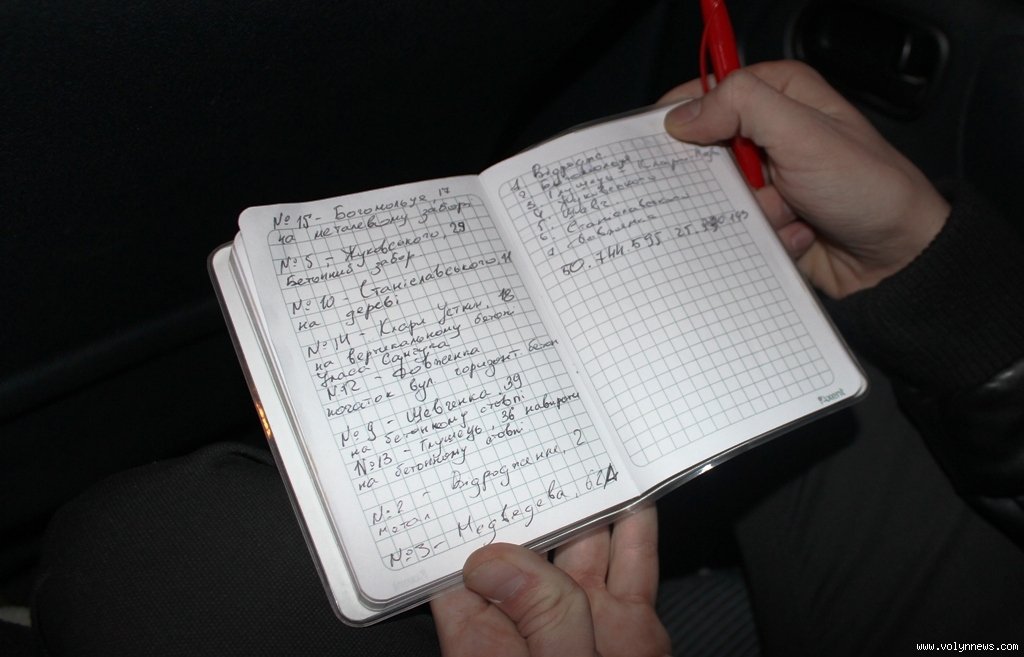 №15 - Богомольця, 17
на металевому заборі
№5 - Жуковського, 29
Бетонний забор
№10 - Станіславського, 11
на дереві
№14 - Клари Цеткін, 18
на вертикальному бетон
Траса
№12 - Довженка
початок вул. горизонт бетон
№9 - Шевченка, 39
на бетонному стовпі
№13 - Глушець, 36 навпроти
на бетонному стовпі
№2 - Відродження, 2
метал
№3 - Медведева, 62А
1 Відродже
2. Богомольця
3 Глушець Клари
4. Жуковського
5. Шевч
6. Станіславського
7. Довженка
50.744 595 25.
Axent
www.volynnews.com